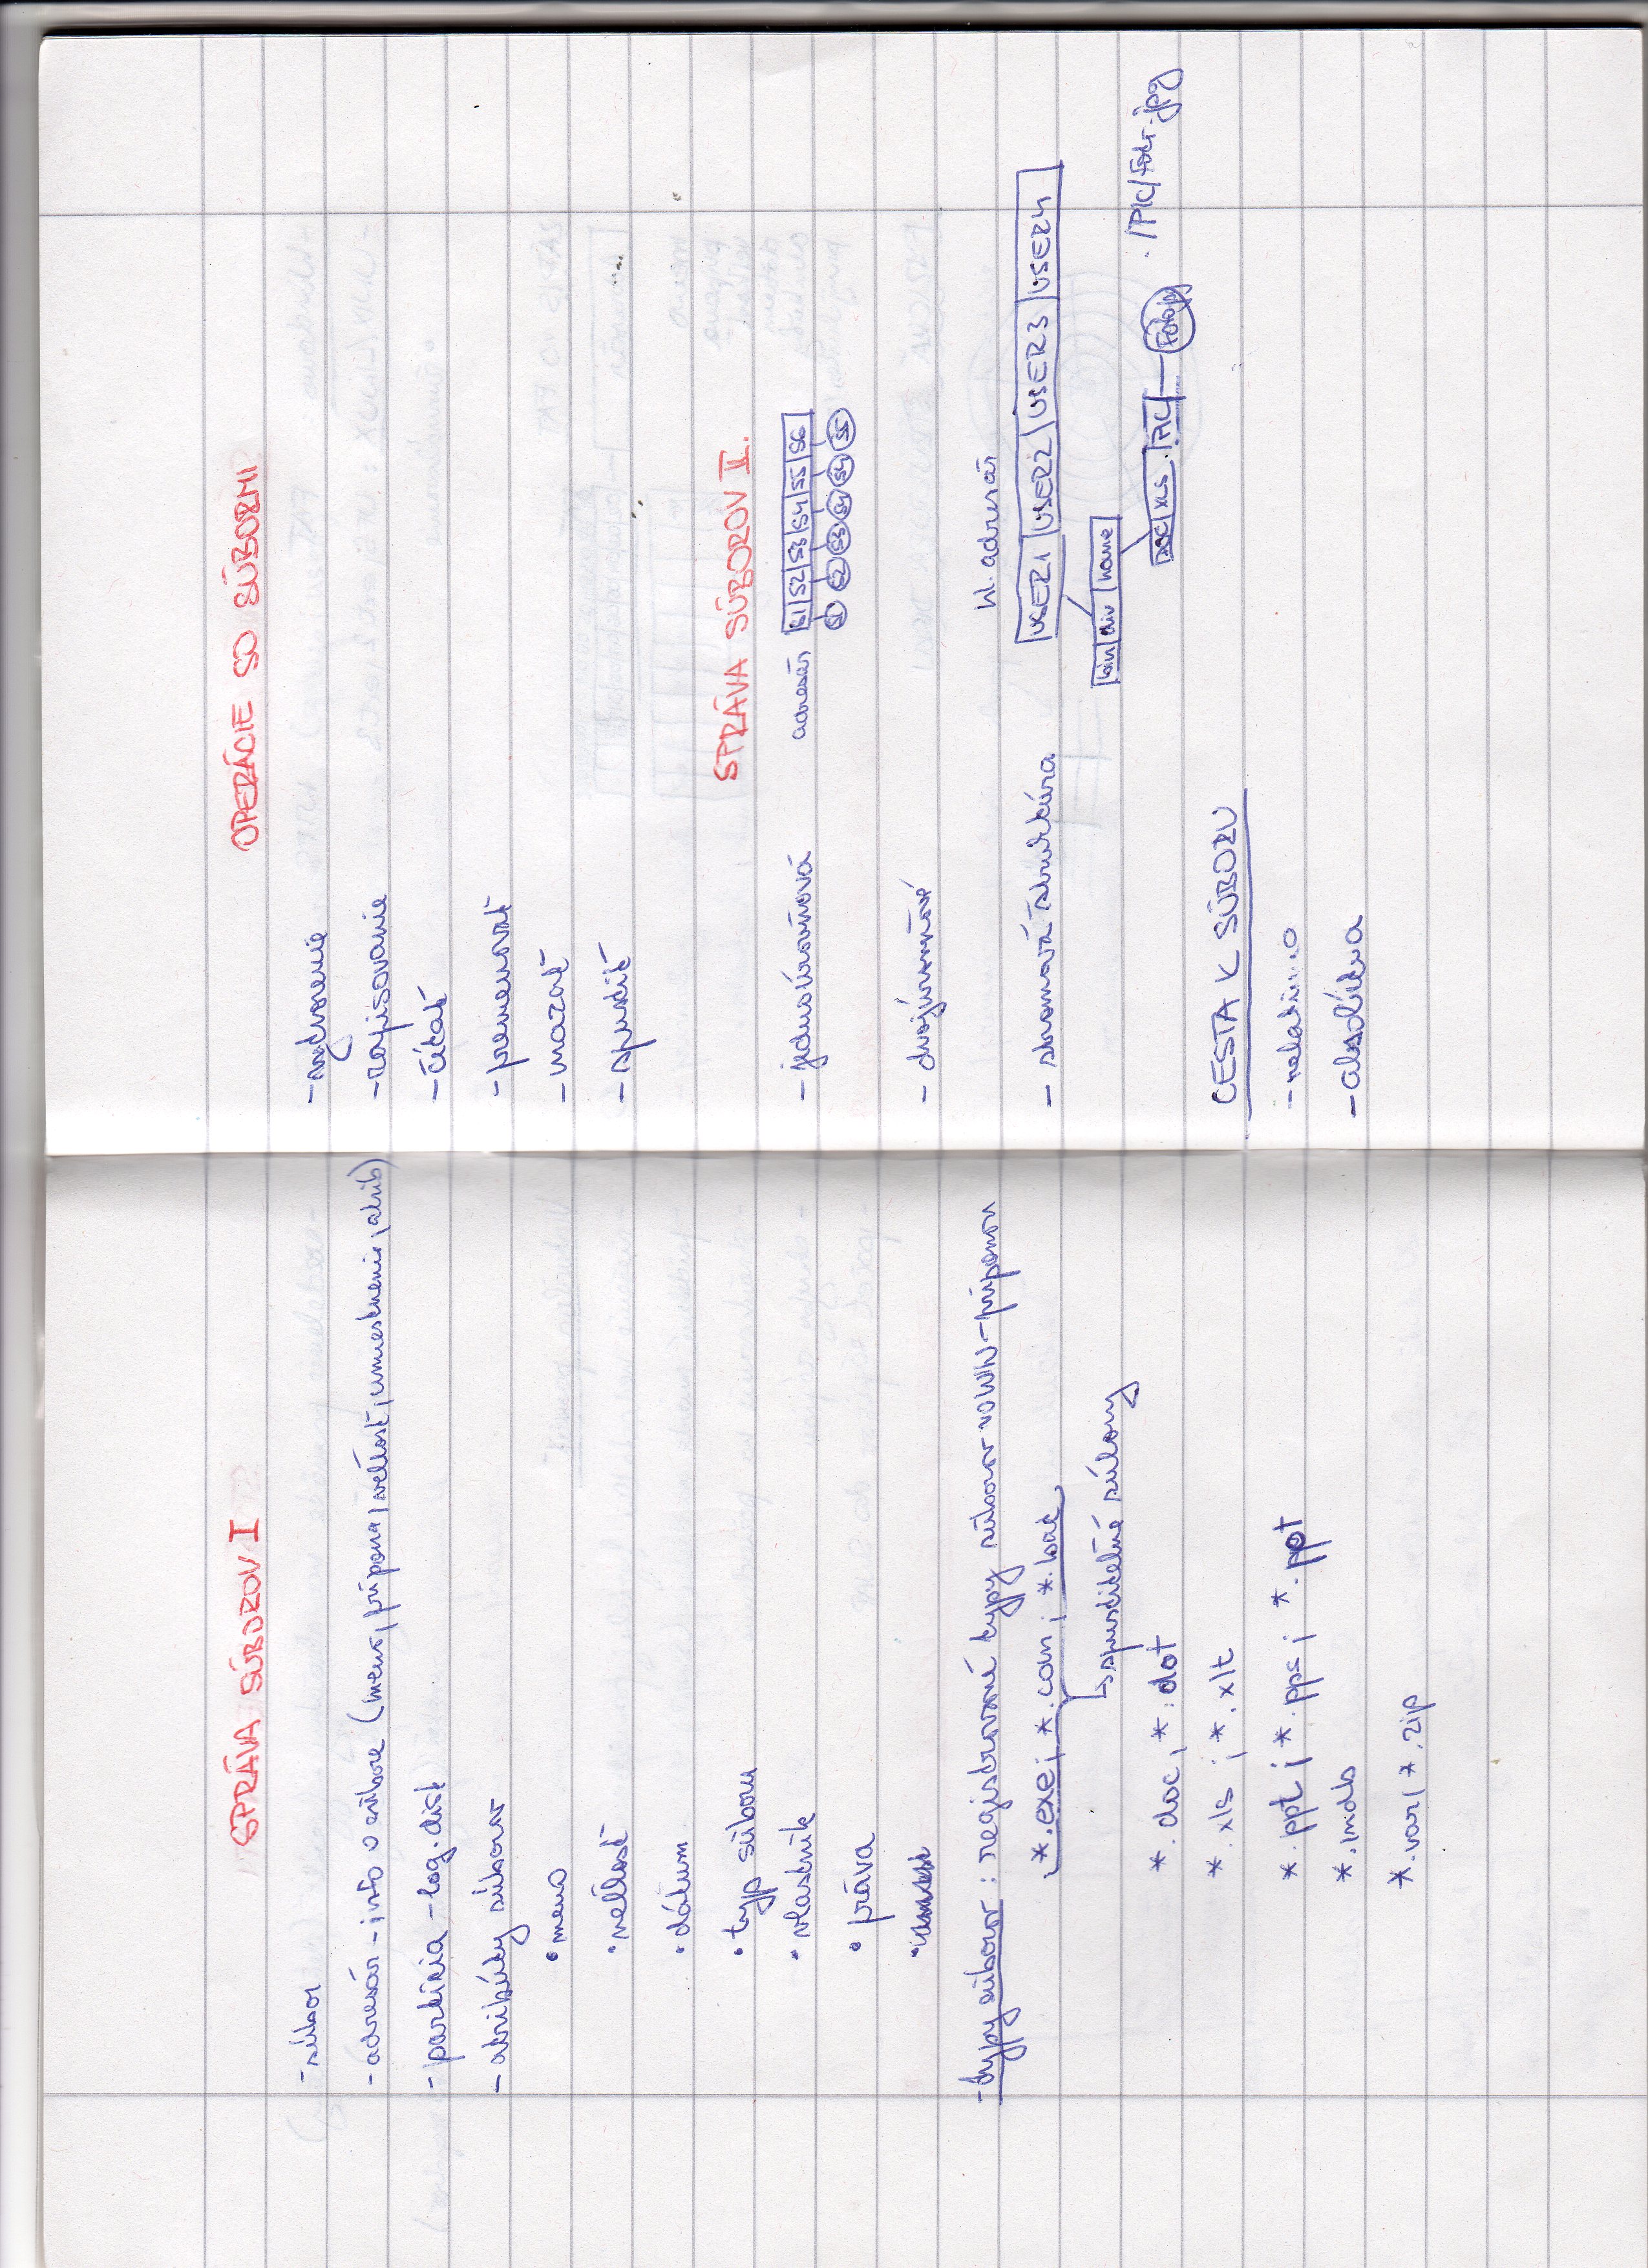 SPRÁVA SÚBOROV I
- súbor
- adresár - info o súbore (meno, prípona, veľkosť, umiestnenie, atrib)
- partícia - log. disk
- atribúty súborov
• meno
• veľkosť
• dátum
• typ súboru
• vlastník
• práva
- typy súborov : registrované typy súborov vo WIN - príponou
*.exe; *.com; *.bat
↳ spustiteľné súbory
*.doc, *.dot
*.xls ; *.xlt
*.ppt ; *.pps ; *.pot
*.mdb
*.rar, *.zip
OPERÁCIE SO SÚBORMI
- vytvorenie
- zapisovanie
- čítať
- premenovať
- mazať
- spustiť
SPRÁVA SÚBOROV II.
- jednoúrovňová adresár S1 S2 S3 S4 S5 S6
S1 S2 S3 S4 S5
- dvojúrovňové
hl. adresár
- stromová štruktúra USER1 USER2 USER3 USER4
bin div home
DOC XLS PIC Foto.jpg /PIC/Foto.jpg
CESTA K SÚBORU
- relatívna
- absolútna